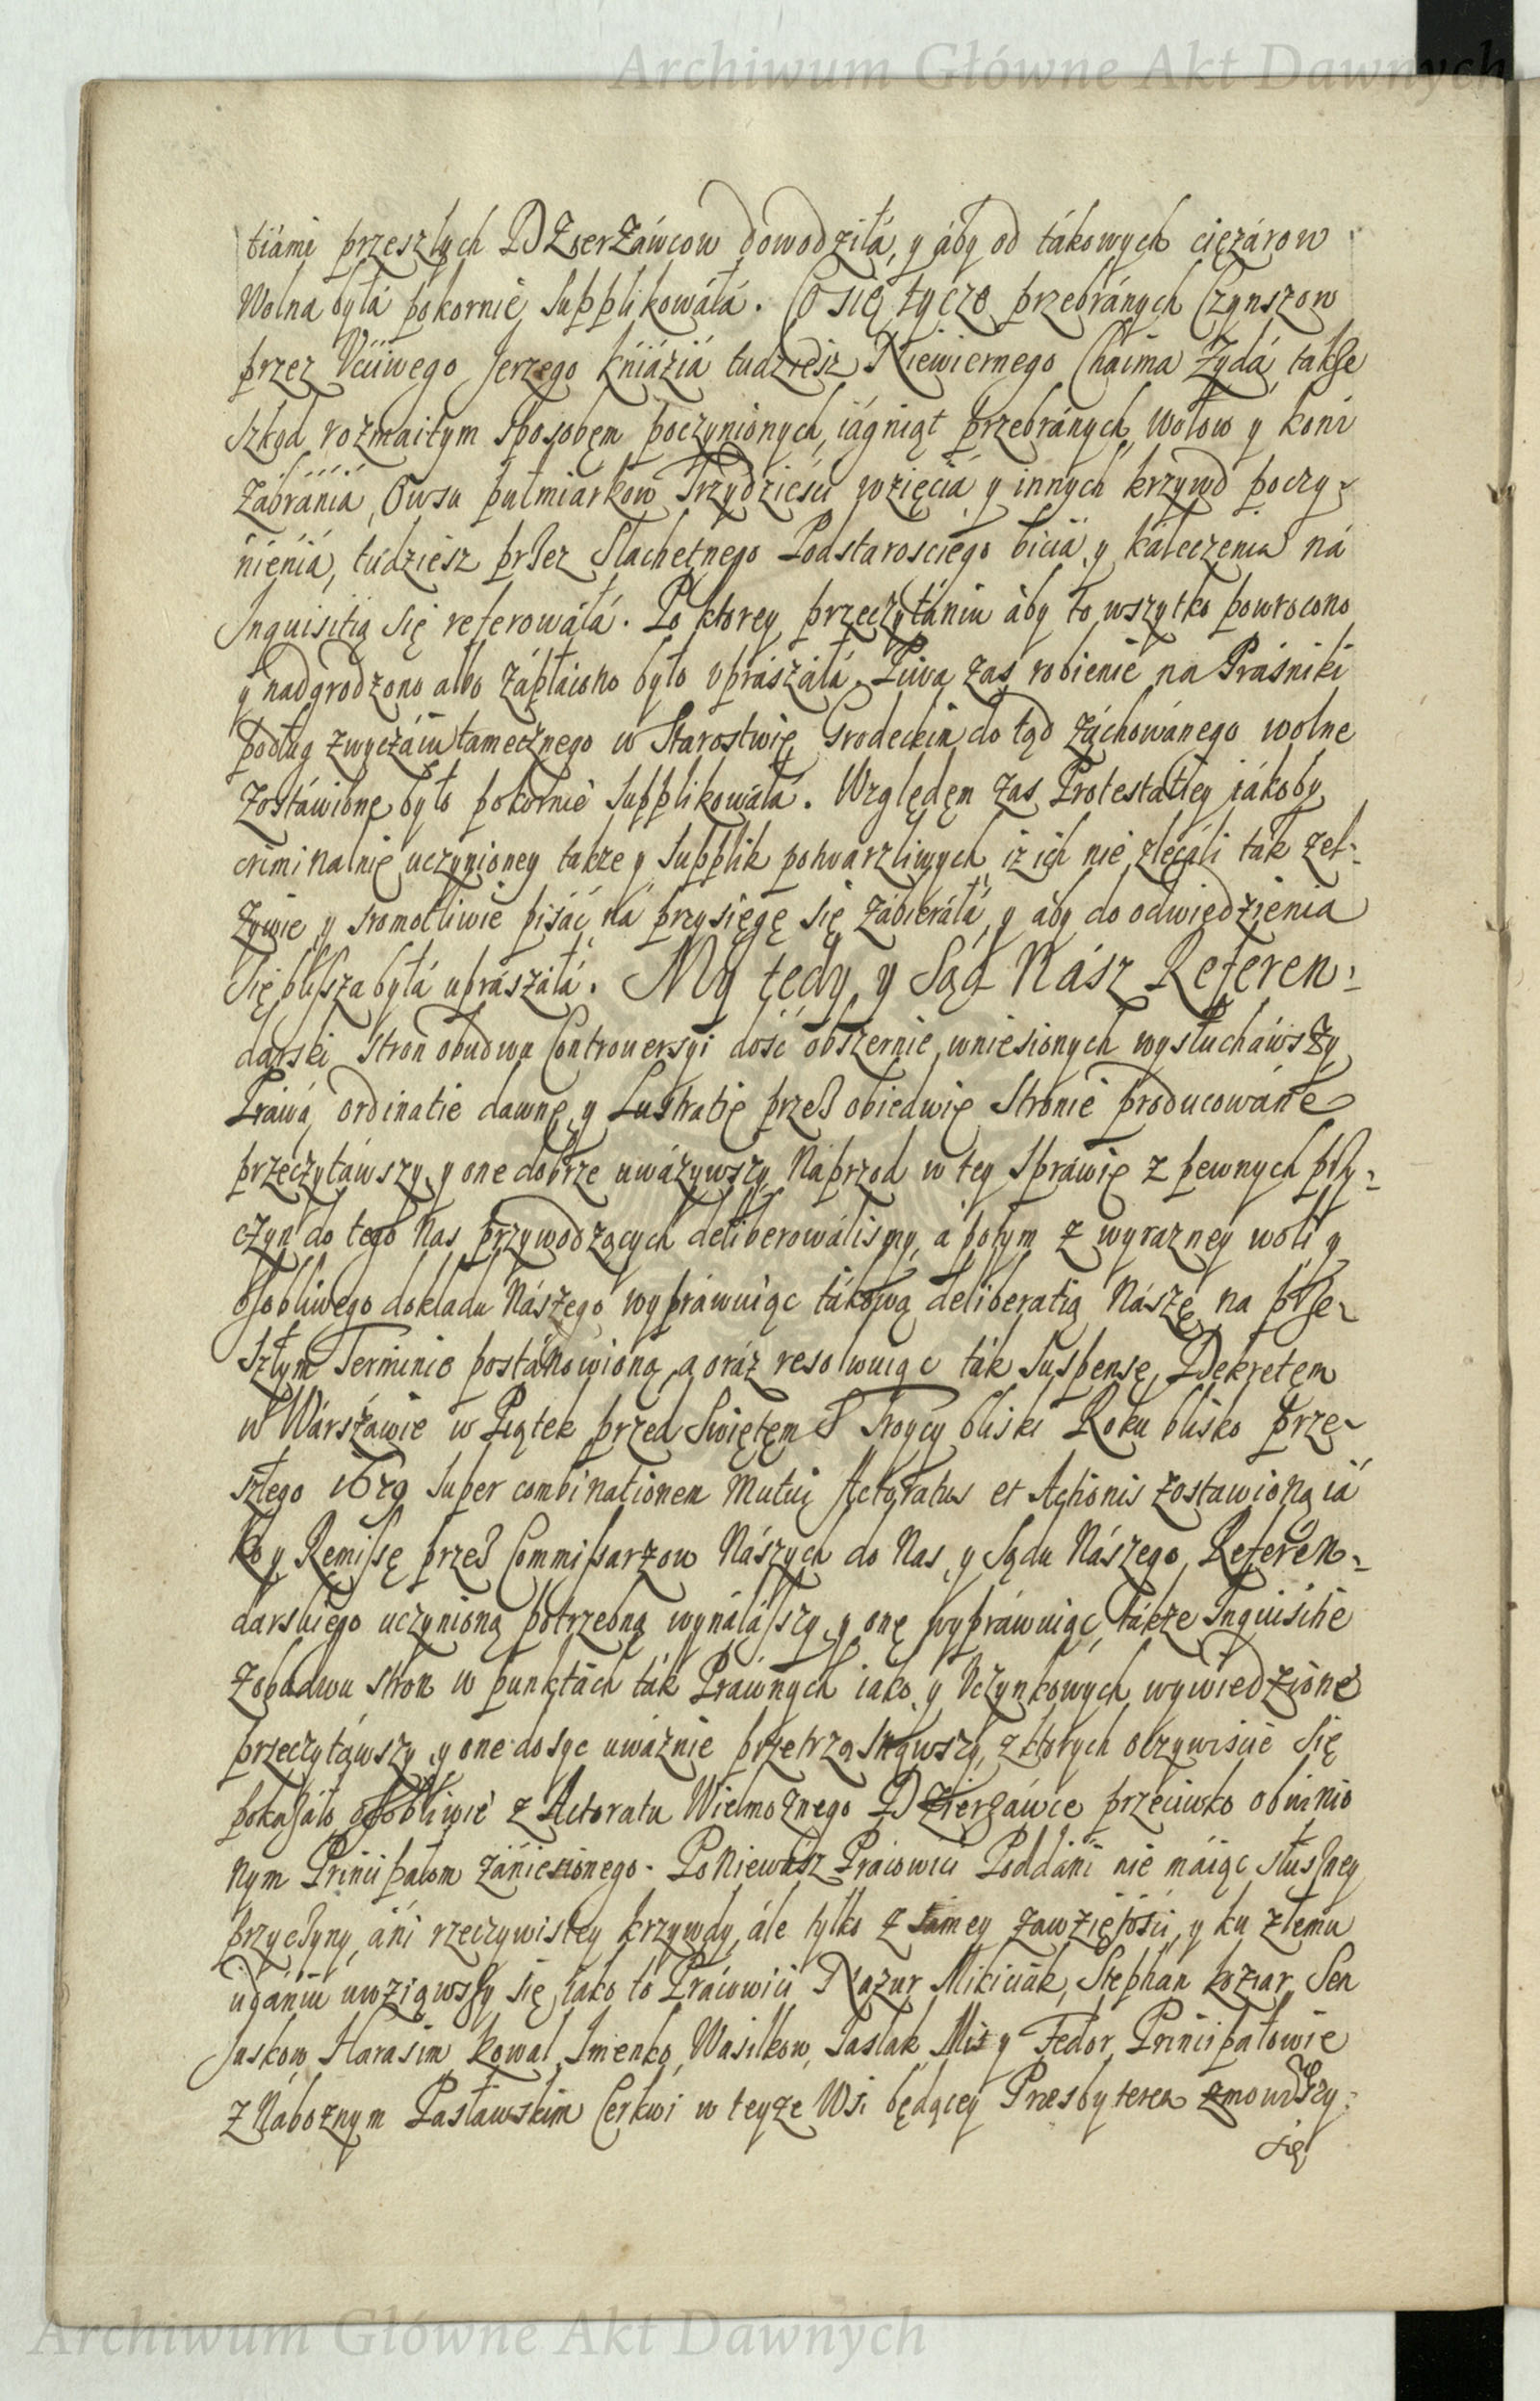 Archiwum Główne Akt Dawnych
tiámi przeszłych DZierZáwcow dowodziłá, y áby od tákowych ciężárow
Wolna byłá pokornie supplikowáłá. Co się tycze przebránych Czynszow
przez Vćciwego Jerzego kniáziá tudziesz Niewiernego Chaima Żydá, takße
szkod rozmaitym sposobęm poczynionych, iágniąt przebránych, wołow y koni
Zábránia, Owsa pułmiarkow Trzydzieśći wzięcia, y innych krzywd poczy-
nięniá, tudziesz przez Slachetnego Podstarosciego bicia, y káleczenia ná
Inquisitią się referowáłá. Po ktorey przeczytániu áby to wszytko powrocono
y nadgrodzono albo Zápłácono było vpraszáłá. Piwa zas robienie na Prásniki
podług zwyczáiu tamecznego w Starostwie Grodeckim do tąd záchowánego wolne
Zostáwione było pokornie supplikowáłá. Względęm zas Protestátiey iákoby
criminalnie uczynioney takze y supplik potwarzliwych, iz ich nie zlecáli tak zel-
żywie y sromotliwie pisáć ná przysięgę się zábieráłá, y aby do odwiedzienia
się bliszsza byłá upraszáłá. My tedy y Sąd Nász Referen-
darski, stron obudwu Controuersyi dość obszernie wniesionych wysłuchawszy
Práwa, ordinatie dawne, y Lustratie przeß obiedwie Stronie producowáne
przeczytáwszy, y one dobrze uwáżywszy, Naprzod w tey spráwie z pewnych przy-
czyn do tego Nas przywodzących deliberowálismy, á potym z wyrazney woli y
osobliwego dokladu Nászego wypráwuiąc tákową deliberatią Nászę na prze-
szłym Terminie postánowioną, a oráz resolwuiąc ták suspensę, Dekretęm
w Wárszáwie w Piątek przed Swiętęm S Troycy bliski Roku blisko prze-
szłego 1679 super combinationem mutui Actoratus et Actionis zostawioną iá
ko y Remissę przeß Commissarzow Nászych do Nas, y Sądu Nászego Referen-
darskiego uczynioną potrzebną wynalászszy, y onę wypráwuiąc, tákże Inquisitie
Zobudwu stron w punktach ták Práwnych iáko y Vczynkowych wywiedzione
przeczytáwszy, y one dosyc uwáżnie przetrząsnąwszy, z ktorych oczywiscie się
pokazáło osobliwie z Actoratu Wielmożnego DZierżáwce przeciwko obwinio
nym Principałom zániesionego. Ponieważ Prácowici Poddáni nie máiąc słuszney
przyczyny, áni rzeczywistey krzywdy, ále tylko z samey zawziętości, y ku złemu
udániu uwziąwszy się, iáko to Prácowici Nazur Mikiciak, Stephán koziar, Sen
Juskow, Harasim kowal, Imenko, Wasilkow, Paslak, Mis y Fedor, Principałowie
z Náboznym Pasławskim Cerkwi w teyże Wsi będącey Præsbyterem zmowiwszy
się
Archiwum Główne Akt Dawnych